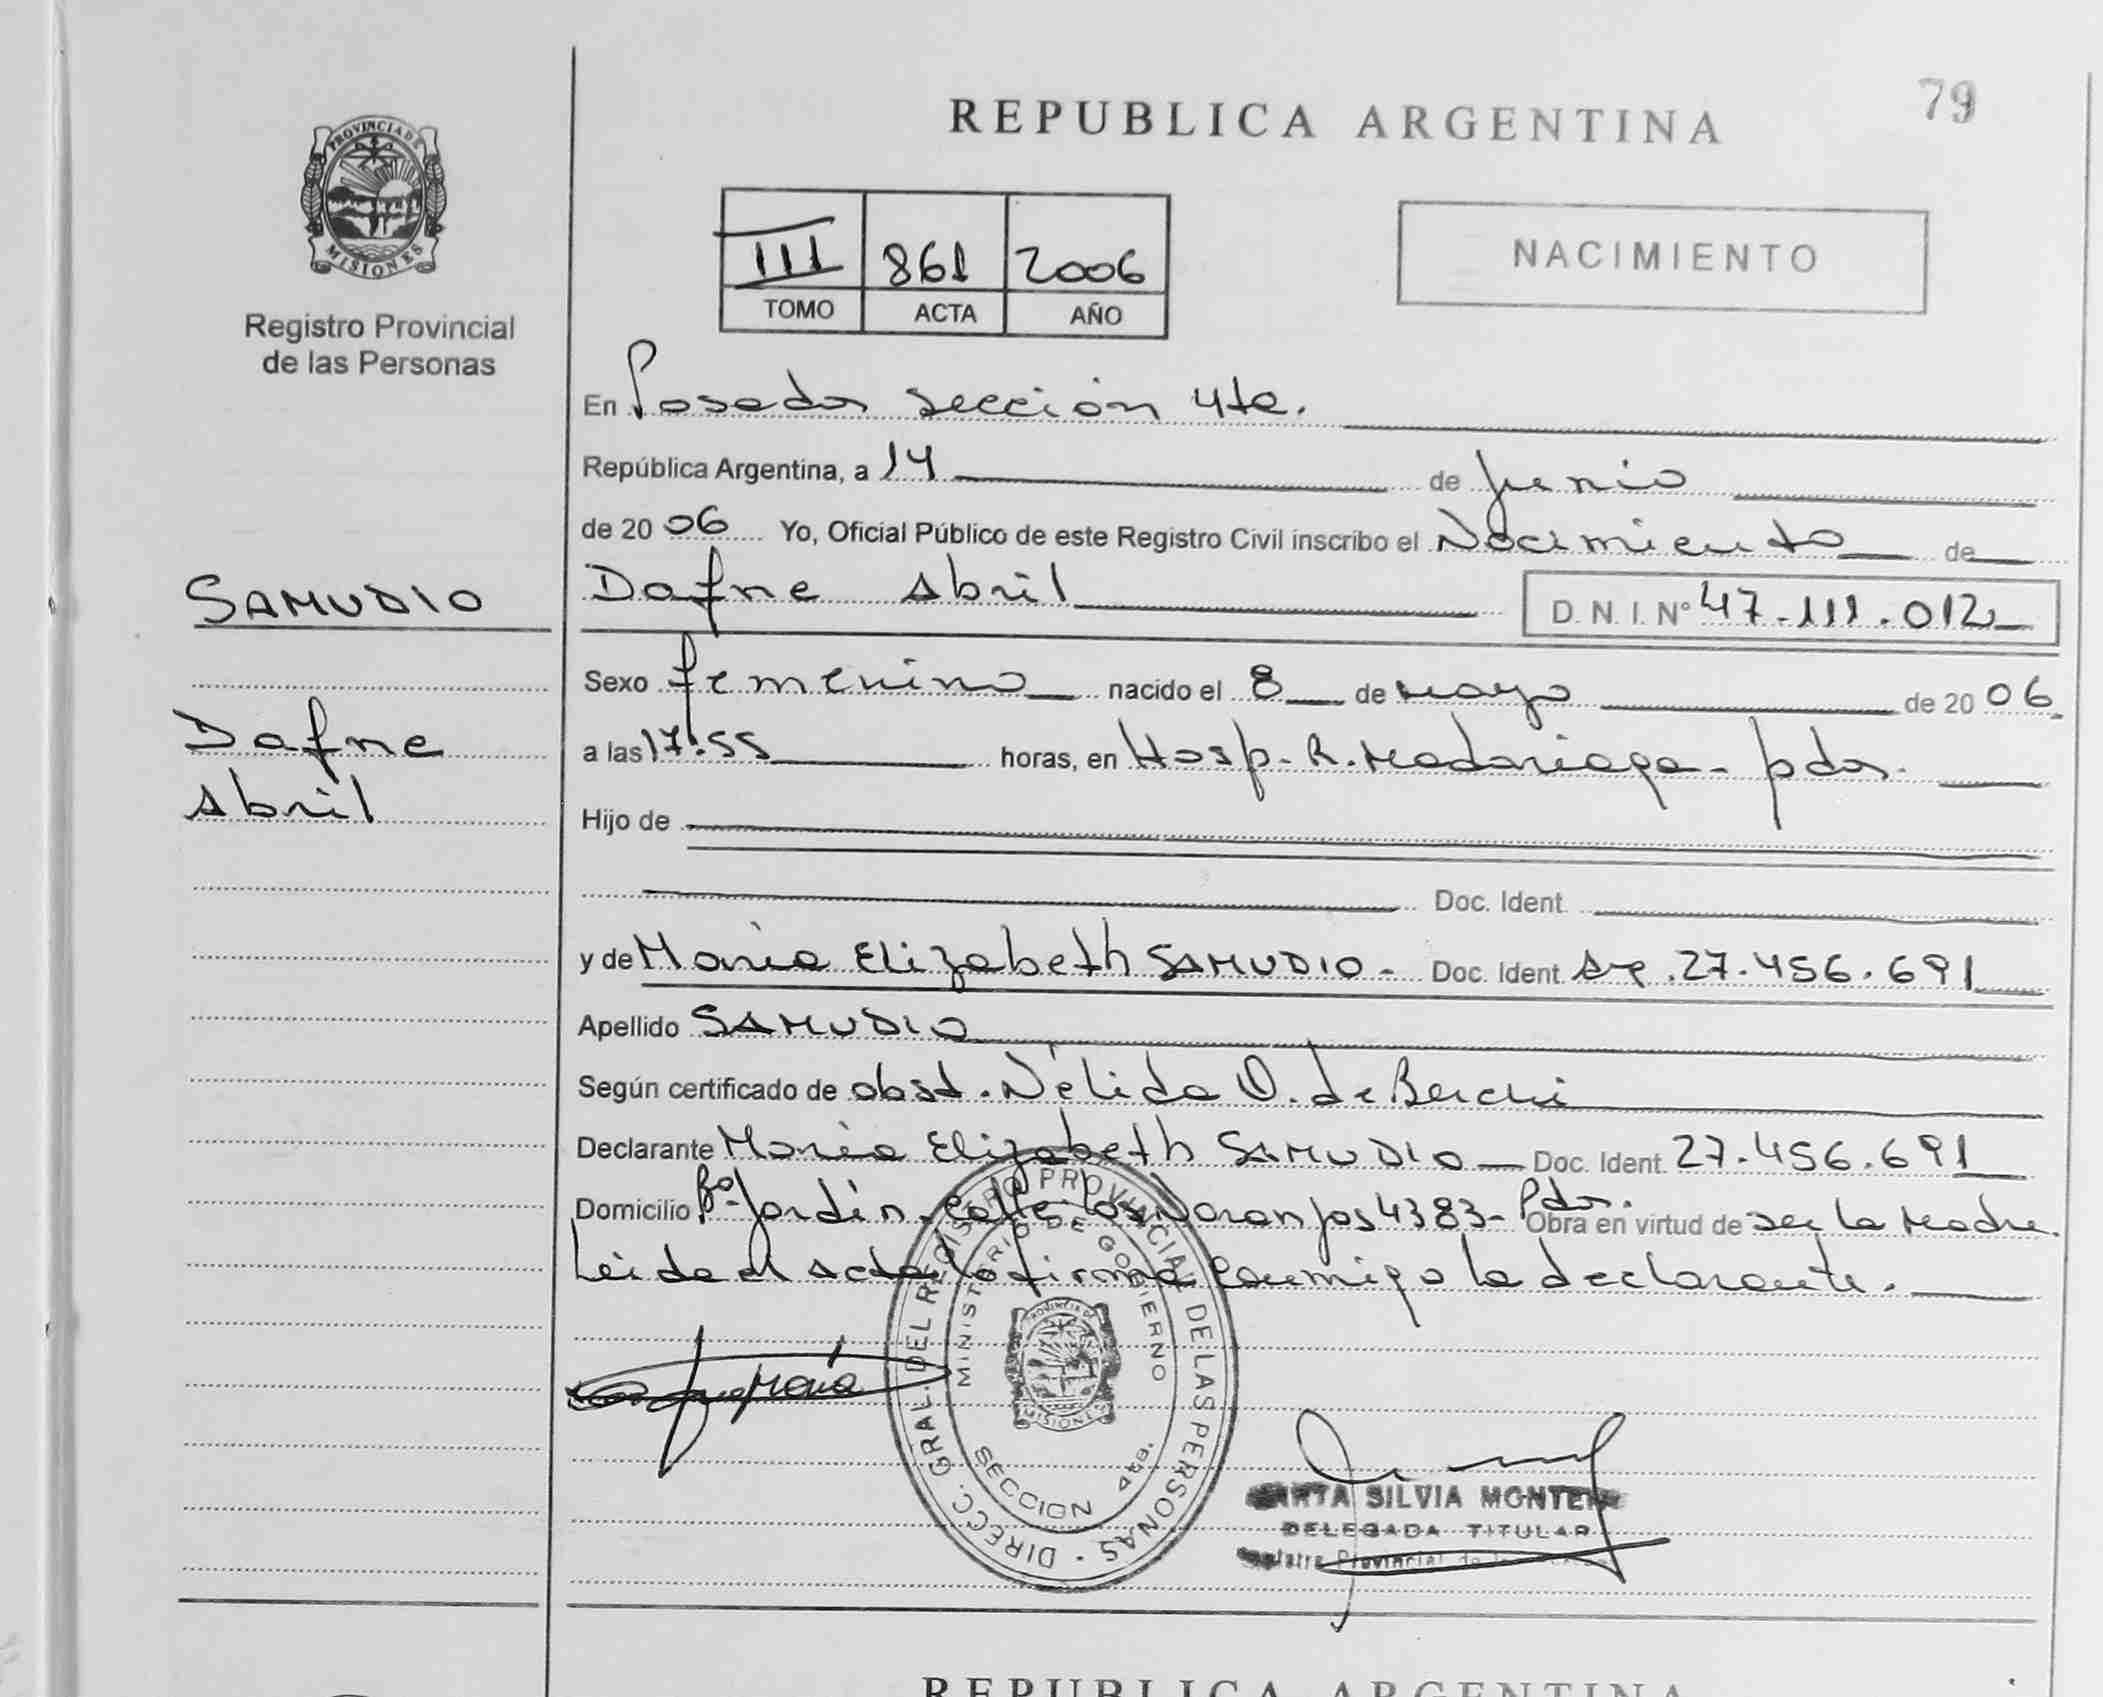 79
REPUBLICA ARGENTINA
PROVINCIA DE
MISIONES
Registro Provincial
de las Personas
III 861 2006
TOMO ACTA AÑO
NACIMIENTO
En Posadas sección 4ta.
República Argentina, a 14 de junio
de 2006 Yo, Oficial Público de este Registro Civil inscribo el Nacimiento de
SAMUDIO
Dafne Abril D. N. I. Nº 47.111.012
Sexo femenino nacido el 8 de mayo de 2006
Dafne
Abril
a las 17:55 horas, en Hosp. R. Madariaga - pdas.
Hijo de
Doc. Ident.
y de María Elizabeth SAMUDIO - Doc. Ident. Arg. 27.456.691
Apellido SAMUDIO
Según certificado de obst. Nélida O. de
Declarante María Elizabeth SAMUDIO Doc. Ident. 27.456.691
Domicilio Bº Jardín - calle Los Naranjos 4383 - Pdas. Obra en virtud de ser la madre.
Leída el acta, la firma conmigo la declarante.
María
DIRECC. GRAL. DEL REGISTRO PROVINCIAL DE LAS PERSONAS
MINISTERIO DE GOBIERNO
PROVINCIA DE
MISIONES
SECCION 4ta.
SILVIA
DELEGADA TITULAR
Provincial de
REPUBLICA ARGENTINA